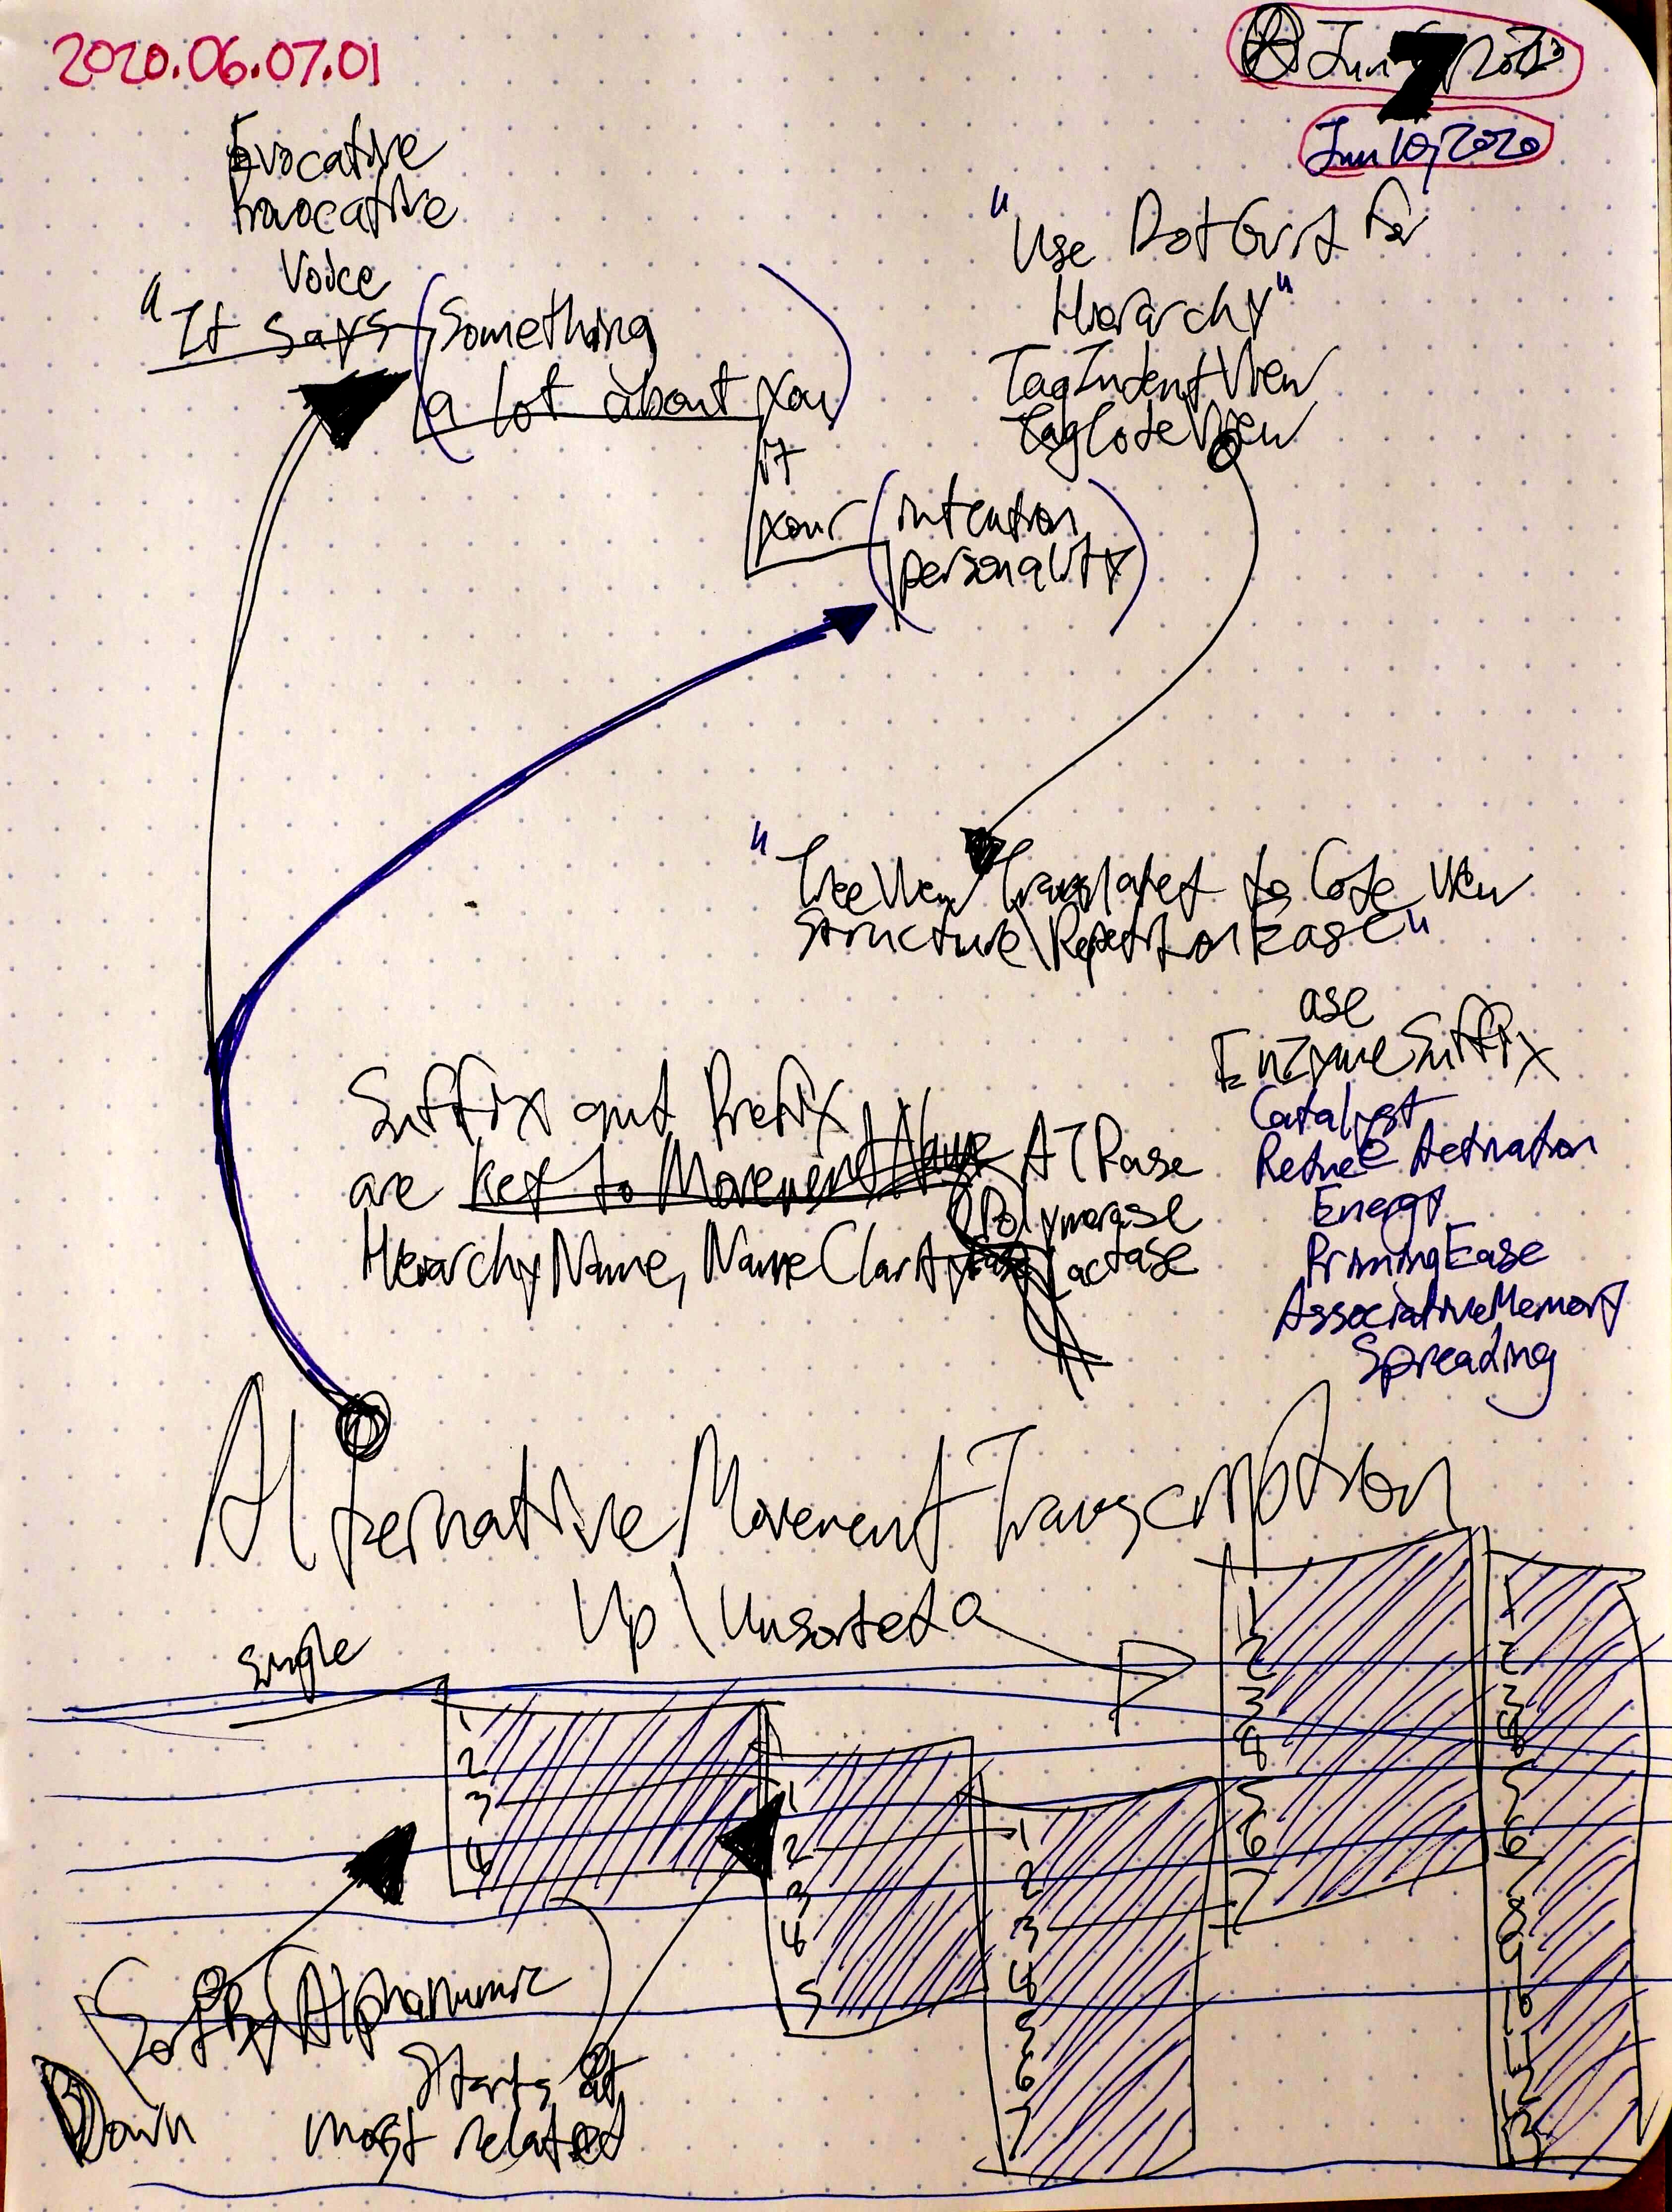 2020.06.07.01
Jun 7, 202
Jun 10, 2020
Evocative
Provocative
Voice
"It says (Something
a lot about you)
if
your (intention
personality)
"Use Dot Grid for
Hierarchy"
TagIndentView
TagCodeView
"TreeView Translated to Code View
Structure\Repetition Ease"
ase
Enzyme Suffix
Catalyst
Reduce Activation
Energy
PrimingEase
AssociativeMemory
Spreading
Suffix and Prefix
are key to Movement Name
HierarchyName, NameClarity
ATPase
Polymerase
Lactase
AlternativeMovementTranscription
Up\Unsorted
Single
1
2
3
4
1
2
3
4
5
1
2
3
4
5
6
7
1
2
3
4
5
6
7
1
2
3
4
5
6
7
8
9
10
11
12
13
Sort By Alphanumeric
Down
Starts at
most related